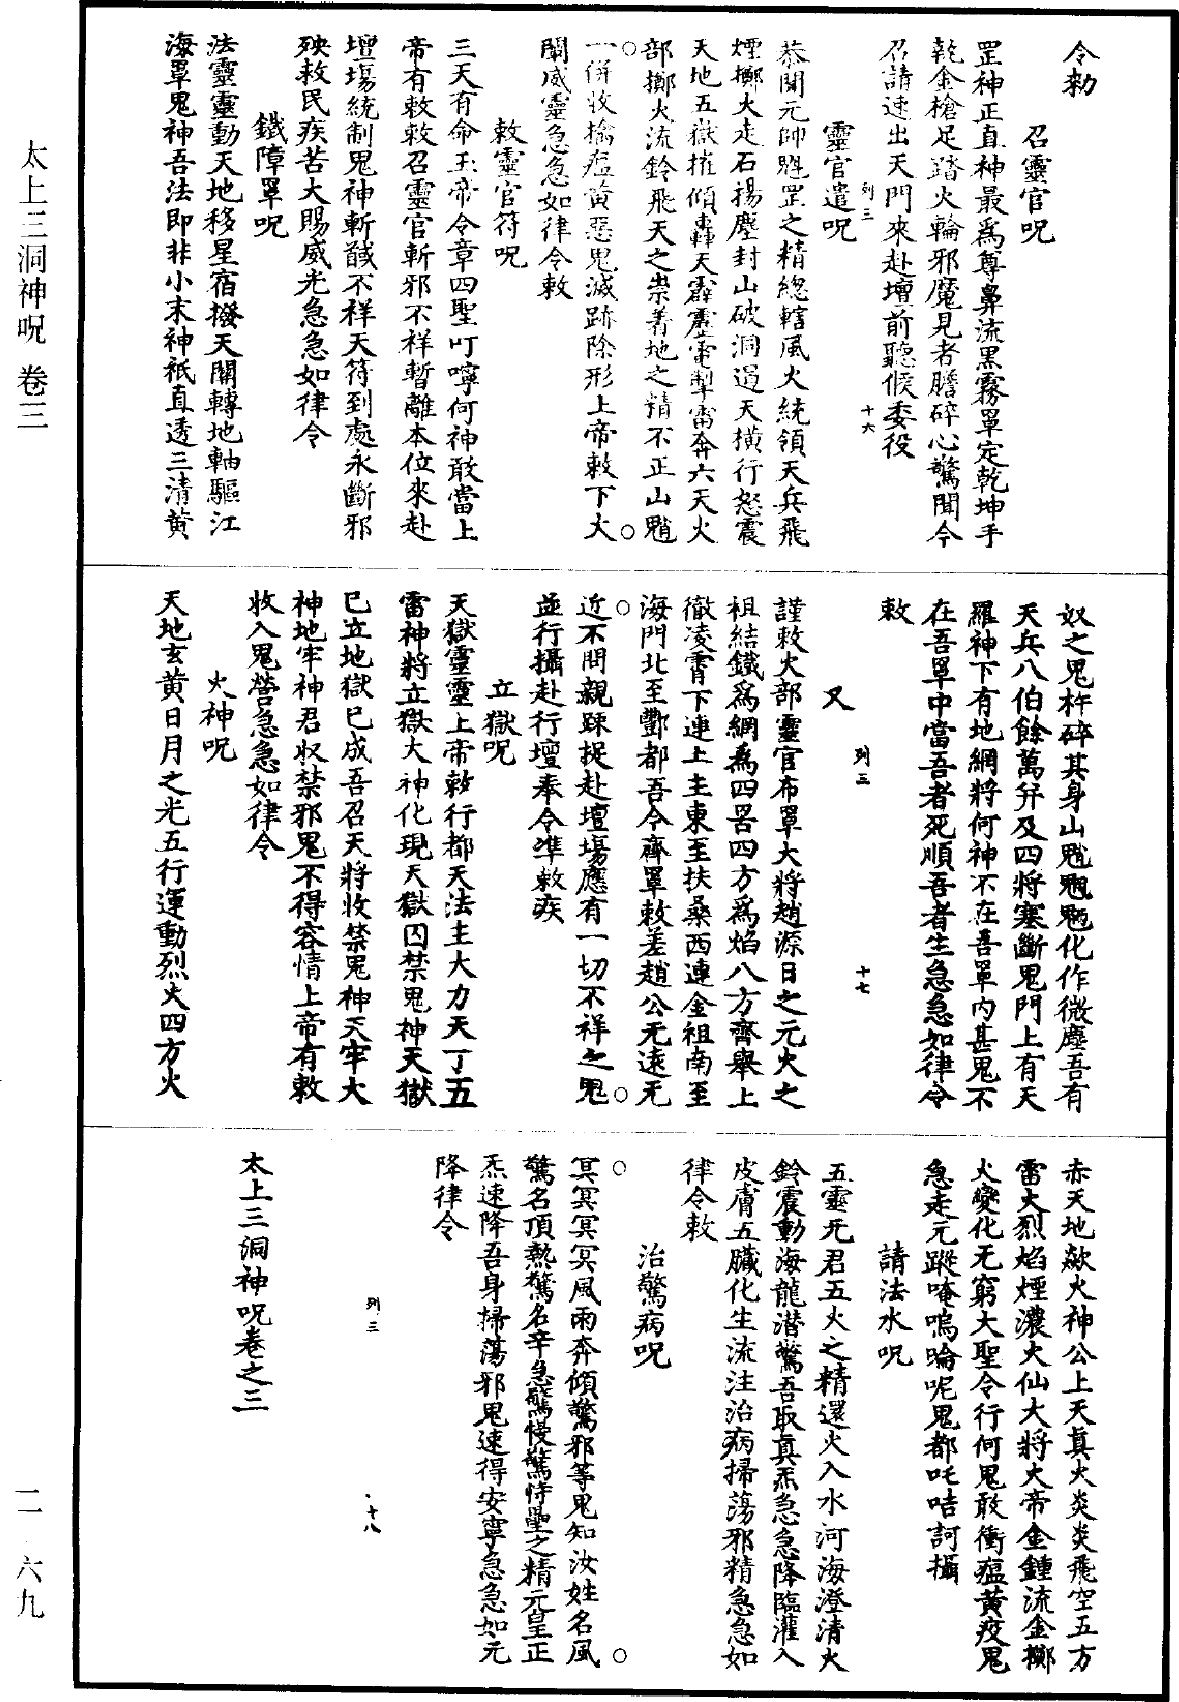 太上三洞神呪 卷三
令勑
召靈官呪
罡神正直神最爲尊鼻流黑霧罩定乾坤手
乾金槍足踏火輪邪魔見者膽碎心驚聞今
召請速出天門來赴壇前聽候委役
列三
十六
靈官遣呪
恭聞元帥魁罡之精總轄風火統領天兵飛
煙擲火走石揚塵封山破洞過天橫行怒震
天地五嶽摧傾轟天霹靂電掣雷奔六天火
部擲火流鈴飛天之祟着地之精不正山魈
一併收擒瘟黃惡鬼滅跡除形上帝敕下大
闡威靈急急如律令敕
敕靈官符呪
三天有命玉帝令章四聖叮嚀何神敢當上
帝有敕敕召靈官斬邪不祥暫離本位來赴
壇場統制鬼神斬馘不祥天符到處永斷邪
殃救民疾苦大賜威光急急如律令
鐵障罩呪
法靈靈動天地移星宿撥天關轉地軸驅江
海罩鬼神吾法即非小末神祇直透三清黃
奴之鬼杵碎其身山魈魍魎化作微塵吾有
天兵八伯餘萬兵及四將塞斷鬼門上有天
羅神下有地網將何神不在吾罩內甚鬼不
在吾罩中當吾者死順吾者生急急如律令
敕
列三
十七
又
謹敕火部靈官布罩大將趙源日之元火之
祖結鐵爲網爲四罟四方爲焰八方齊舉上
徹凌霄下連上主東至扶桑西連金祖南至
海門北至酆都吾今齊罩敕差趙公无遠无
近不問親踈捉赴壇場應有一切不祥之鬼
並行攝赴行壇奉令準敕疾
立獄呪
天獄靈靈上帝敕行都天法主大力天丁五
雷神將立獄大神化現天獄囚禁鬼神天獄
已立地獄已成吾召天將收禁鬼神天牢大
神地牢神君收禁邪鬼不得容情上帝有敕
收入鬼營急急如律令
火神呪
天地玄黃日月之光五行運動烈火四方火
赤天地歘火神公上天真火炎炎飛空五方
雷火烈焰煙濃火仙大將火帝金鍾流金擲
火變化无窮大聖令行何鬼敢衝瘟黃疫鬼
急走元蹤唵嗚㖮呢鬼都吒咭訶攝
請法水呪
五靈无君五火之精還火入水河海澄清火
鈴震動海龍潛驚吾取真炁急急降臨灌入
皮膚五臟化生流注治病掃蕩邪精急急如
律令敕
治驚病呪
冥冥冥冥風雨奔傾驚邪等鬼知汝姓名風
驚名頂熱驚名辛急驚慢驚恃壘之精元皇正
炁速降吾身掃蕩邪鬼速得安寧急急如元
降律令
列三
十八
太上三洞神呪卷之三
二-六九